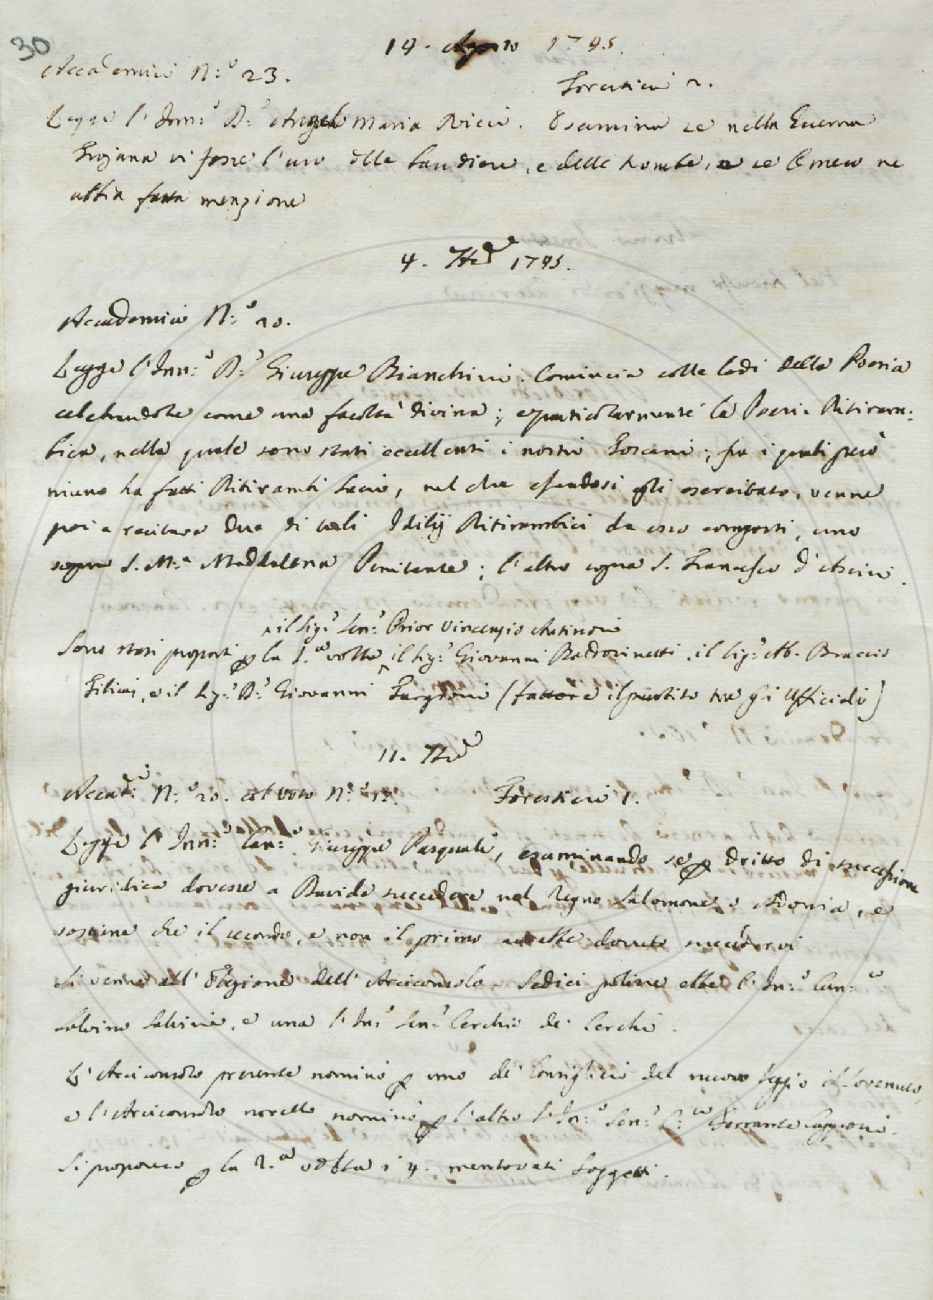 30
14. Agosto 1745.
Accademici N.° 23. Forestieri 2.
Legge l'Inn.° D.r Angel Maria Ricci. Esamina se nella Guerra
Trojana vi fosse l'uso delle bandiere, e delle trombe, e se Omero ne
abbia fatta menzione
4. 7bre 1745.
Accademici N.° 20.
Legge l'Inn.° D.r Giuseppe Bianchini. Comincia colle lodi della Poesia
celebrandola come una facoltà divina; e particolarmente la Poesia Ditiram=
bica, nella quale sono stati eccellenti i nostri Toscani; fra i quali però
niuno ha fatti Ditirambi Sacri, nel che essendosi egli esercitato, venne
poi a recitare due di tali Idilij Ditirambici da esso composti, uno
sopra S. M.a Maddalena Penitente; l'altro sopra S. Francesco d'Ascesi.
il Sig.r Sen.r Prior Vincenzio
Sono stati proposti p la 1.a volta il Sig.r Giovanni il Sig.r Ab. Braccio
e il Sig.r D.r Giovanni Targioni (fattone il partito tra gli Ufficiali)
11. 7bre
Accad.ci N.° 20. Forestieri 1.
Legge l'Inn.° Can.co Giuseppe Pasquali, esaminando se p dritto di successione
giuridica dovesse a Davide succedere nel Regno Salomone o Adonia, e
sostiene che il secondo, e non il primo avrebbe dovuto succedervi
Si venne all'Elezione dell'Arciconsolo. Sedici polizze ebbe l'In.° Can.co
Salvino Salvini, e una l'In.° Sen.r Cerchio de' Cerchi.
L'Arciconsolo presente nominò p uno de' Consiglieri del nuovo seggio
e l'Arciconsolo novello nominò p l'altro l'In.° Sen.r Ferrante Capponi.
Si proposero p la 2.a volta i 4. mentovati Soggetti.